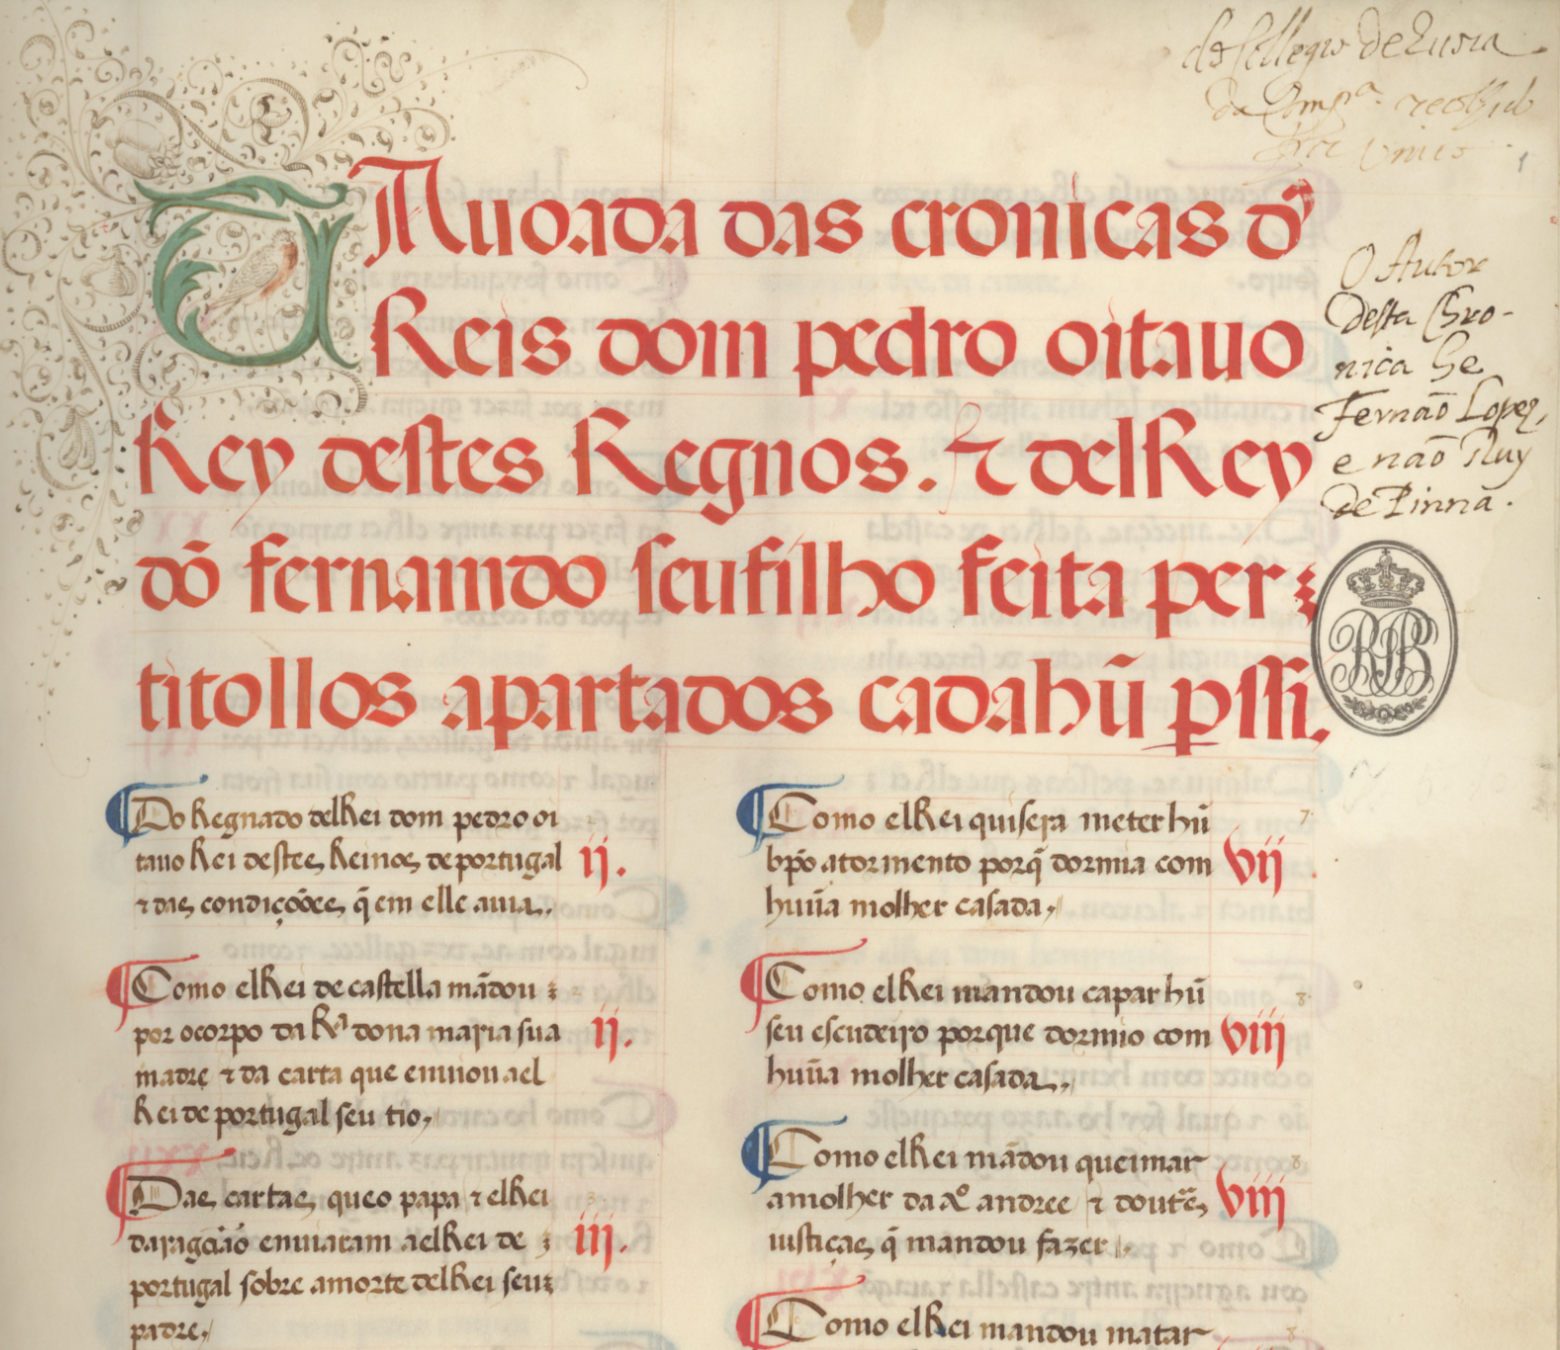 do Collegio de Evora
da Comp.ª
TAuoada das cronicas dos
Reis dom pedro oitauo
Rey destes Regnos. ⁊ delRey
dõ fernamdo seu filho feita per
titollos apartados cada hũ per ssi.
O Autor
desta Chro-
nica he
Fernaõ Lopez,
e naõ Ruy
de Pinna.
Do Regnado delRei dom pedro oi
tauo Rei destes Reinos de portugal ij.
⁊ das condiçõões q̃ em elle auia.
Como elRei de castella mãdou
por o corpo da Rª dona maria sua ij.
madre ⁊ da carta que enuiou a el
Rei de portugal seu tio,
Das cartas, que o papa ⁊ elRei
daragãão enuiaram a elRei de iij.
portugal sobre a morte delRei seu
padre,
Como elRei quisera meter hũ 7
bp̃o a tormento porq̃ dormia com vij
huũa molher casada,
Como elRei mandou capar hũ 8
seu escudeiro porque dormio com viij
huũa molher casada.,
Como elRei mãdou queimar 8
a molher da aº andree ⁊ doutãs viij
iustiças, q̃ mandou fazer.
Como elRei mandou matar 8